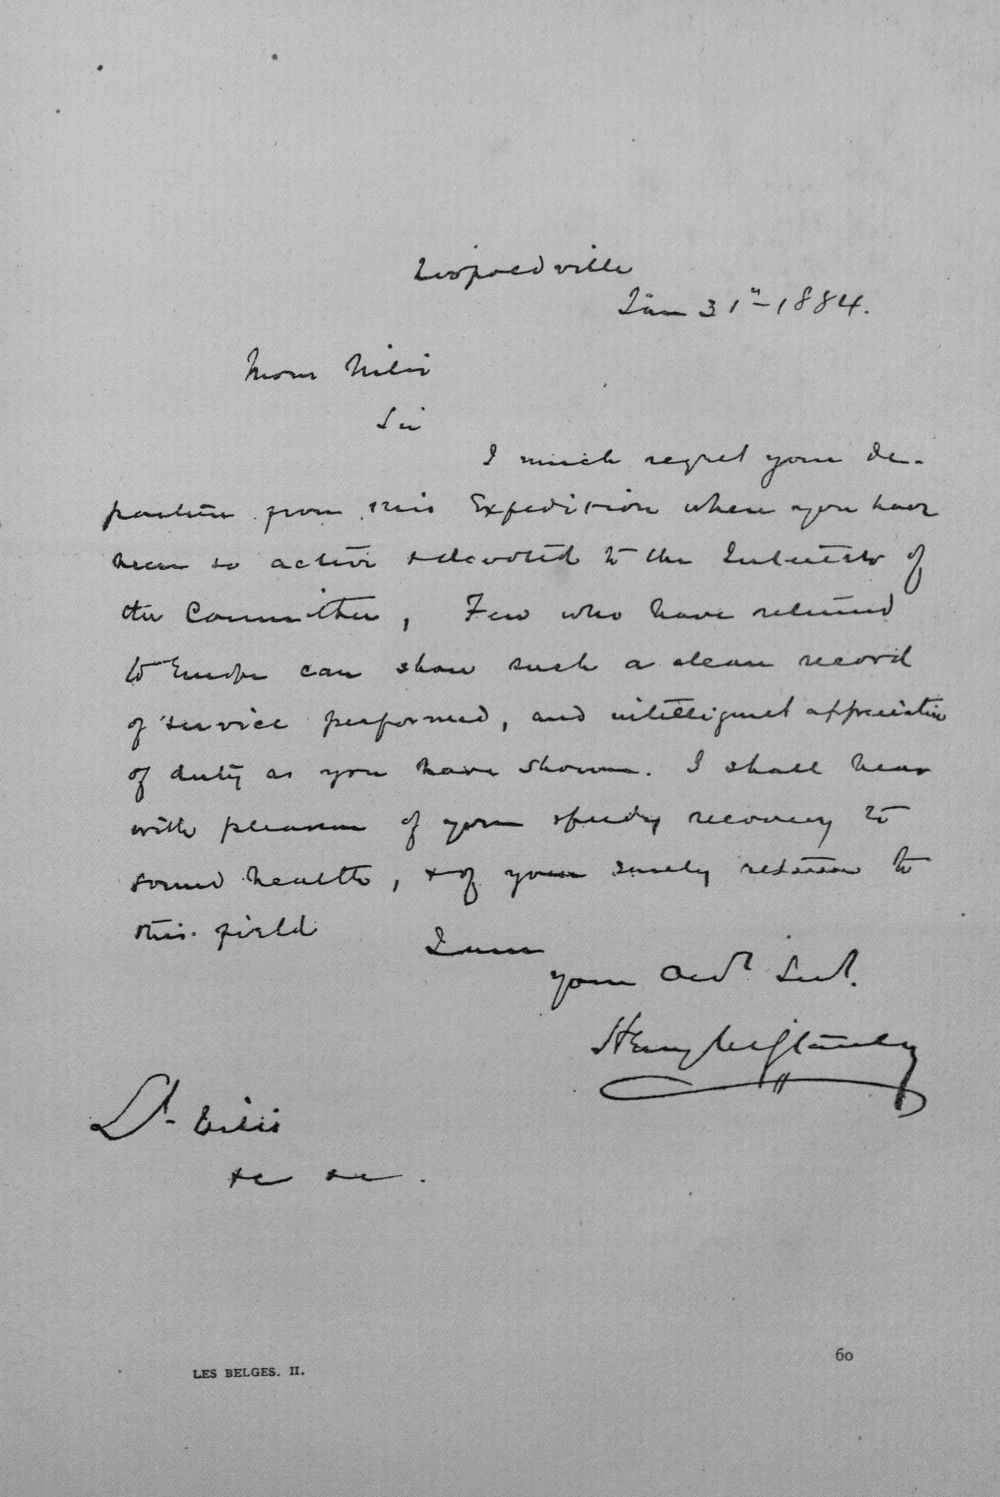 Leopoldville
Jan 31st 1884.
Monsr Nilis
Sir
I much regret your de-
parture from this Expedition where you have
been so active & devoted to the Interests of
the Committee, Few who have returned
to Europe can show such a clean record
of service performed, and intelligent appreciation
of duty as you have shown. I shall hear
with pleasure of your speedy recovery to
sound health, & of your surely return to
this field
I am
your Obdt Svt.
Henry M Stanley
Lt. Nilis
&c &c.
LES BELGES. II.
60